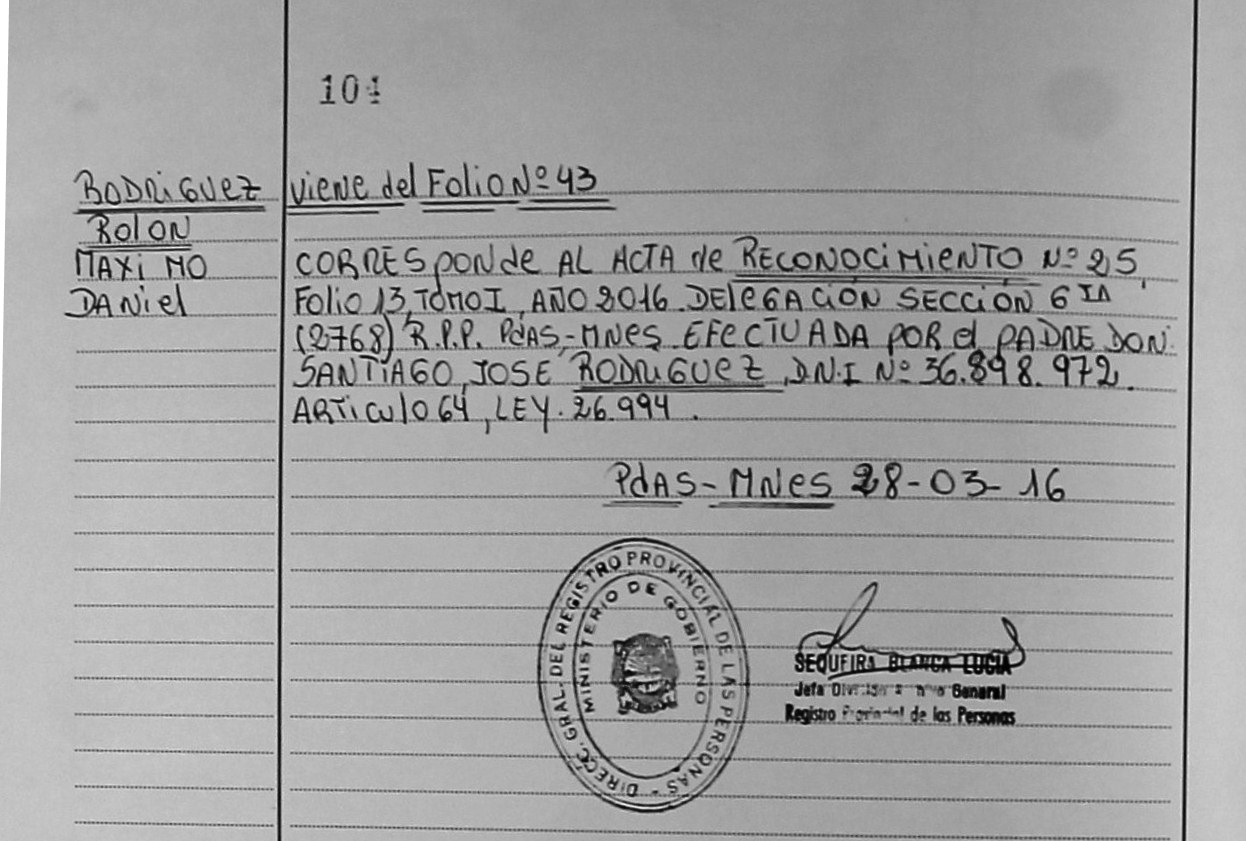 104
RODRIGUEZ
ROLON
MAXIMO
DANIEL
VIENE del Folio Nº 43
CORRESPONDE AL ACTA de RECONOCIMIENTO Nº 25,
Folio 13, TOMO I, AÑO 2016. DELEGACIÓN SECCIÓN 6TA
(2768) R.P.P. PdAS-MNES. EFECTUADA POR el PADRE DON
SANTIAGO, JOSE RODRIGUEZ, D.N.I Nº 36.898.972.
ARTICULO 64, LEY. 26.994.
PdAS-MNES 28-03-16
DIRECC. GRAL. DEL REGISTRO PROVINCIAL DE LAS PERSONAS -
MINISTERIO DE GOBIERNO
SEQUEIRA BLANCA LUCIA
Jefa División General
Registro Provincial de las Personas